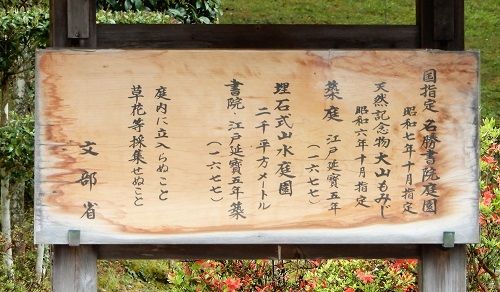 国指定 名勝書院庭園
昭和七年十月指定
天然記念物大山もみじ
昭和六年十月指定
築庭 江戸延寶五年
(一六七七)
埋石式山水庭園
二千平方メートル
書院・江戸延寶五年築
(一六七七)
庭内に立入らぬこと
草花等採集せぬこと
文部省